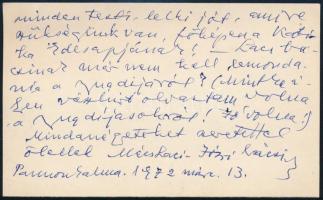 minden testi-lelki jót, amire
szükségünk van, főképen a Kati-
ka Édesapjának! – Laci bá-
csinak már nem kell lemonda-
nia a nyugdíjáról? (Mintha
ilyen olvastam volna
a nyugdíjasokról! Jó volna!)
Mindnégyeteket szeretettel
ölellek Józsi bácsi
Pannonhalma. 1972 márc. 13.